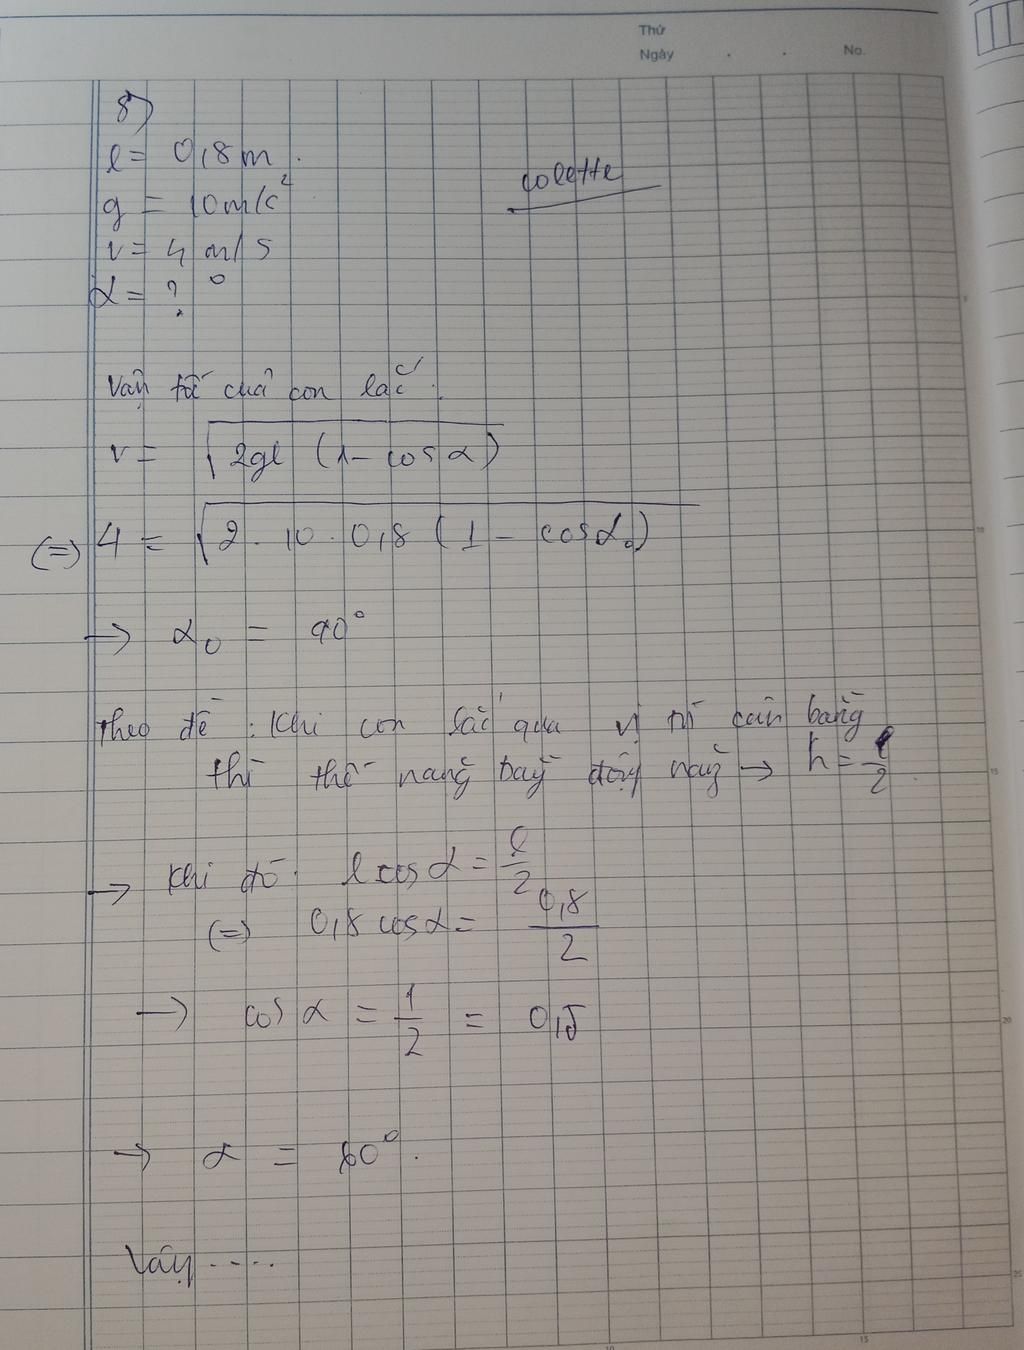 Thứ
Ngày . . No.
8)
l = 0,8m.
g = 10m/s²
v = 4 m/s
α = ? °
colette
Vận tốc của con lắc.
v = √2gl (1 - cos α)
(=) 4 = √2 . 10 . 0,8 (1 - cos α₀)
→ α₀ = 90°
Theo đề : Khi con lắc qua vị trí cân bằng
thì thế năng bằng động năng → h = l/2
→ Khi đó: l cos α = l/2
(=) 0,8 cos α = 0,8/2
→ cos α = 1/2 = 0,5
→ α = 60°.
Vậy ....